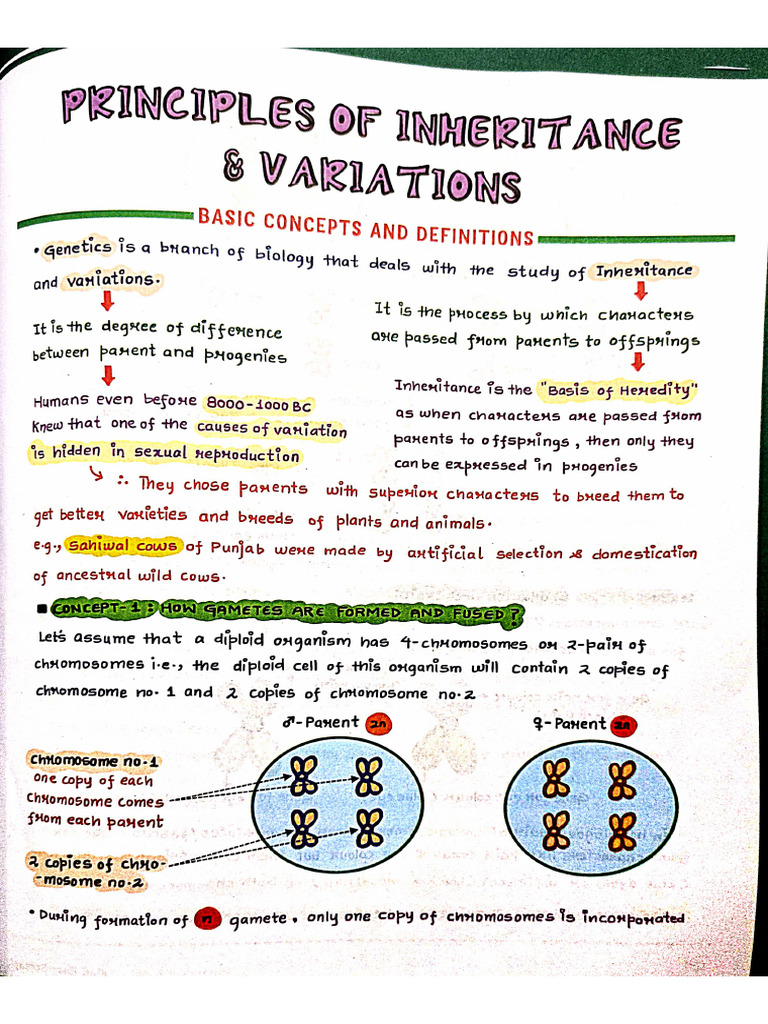 PRINCIPLES OF INHERITANCE
& VARIATIONS
BASIC CONCEPTS AND DEFINITIONS
• Genetics is a branch of biology that deals with the study of Inheritance
and variations.
It is the degree of difference
between parent and progenies
Humans even before 8000-1000 BC
Knew that one of the causes of variation
is hidden in sexual reproduction
It is the process by which characters
are passed from parents to offsprings
Inheritance is the "Basis of Heredity"
as when characters are passed from
parents to offsprings, then only they
can be expressed in progenies
∴ They chose parents with superior characters to breed them to
get better varieties and breeds of plants and animals.
e.g., Sahiwal cows of Punjab were made by artificial selection & domestication
of ancestral wild cows.
■ CONCEPT-1: HOW GAMETES ARE FORMED AND FUSED?
Let's assume that a diploid organism has 4-chromosomes or 2-pair of
chromosomes i.e., the diploid cell of this organism will contain 2 copies of
chromosome no. 1 and 2 copies of chromosome no.2
♂-Parent 2n
♀-Parent 2n
Chromosome no.1
one copy of each
chromosome comes
from each parent
2 copies of chro-
-mosome no.2
• During formation of n gamete, only one copy of chromosomes is incorporated